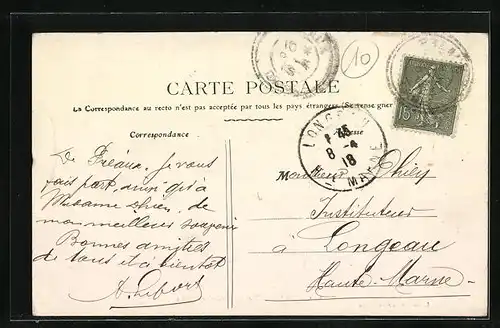 10
CARTE POSTALE
La Correspondance au recto n'est pas acceptée par tous les pays étrangers (Se renseigner
Correspondance
Adresse
LONGEAU
1 45
8 -4
18
HTE MARNE
15
De Fréaux, je vous
fais part, ainsi qu'à
Madame de
mon meilleur souvenir
Bonnes amitiés
de tous et à bientôt
A. Lefort
Monsieur Thiéry
Instituteur
à Longeau
Haute-Marne